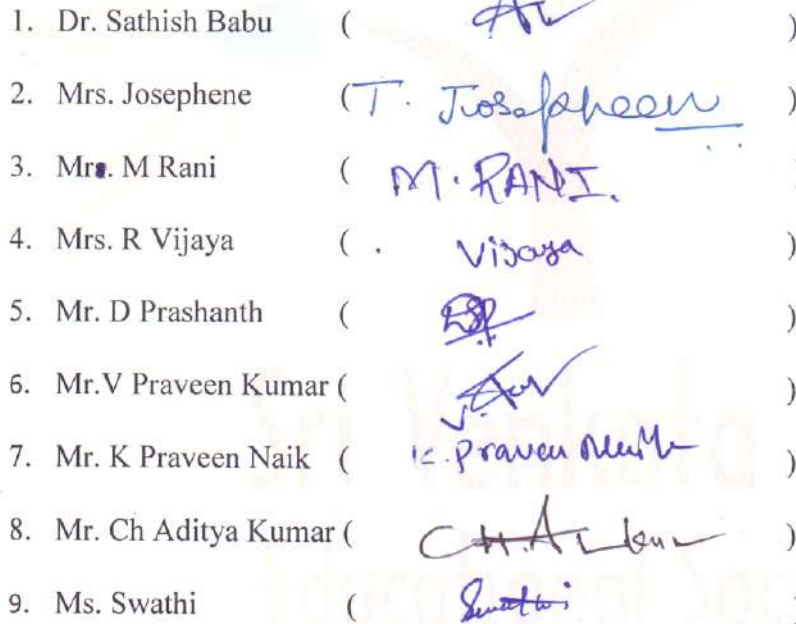 1. Dr. Sathish Babu ( )
2. Mrs. Josephene (T. Josepheen )
3. Mrs. M Rani ( M. RANI. )
4. Mrs. R Vijaya ( . Vijaya )
5. Mr. D Prashanth ( )
6. Mr.V Praveen Kumar ( )
7. Mr. K Praveen Naik ( K. Praveen Naik )
8. Mr. Ch Aditya Kumar ( )
9. Ms. Swathi ( Swathi
Sri Venkata
Educational Soc